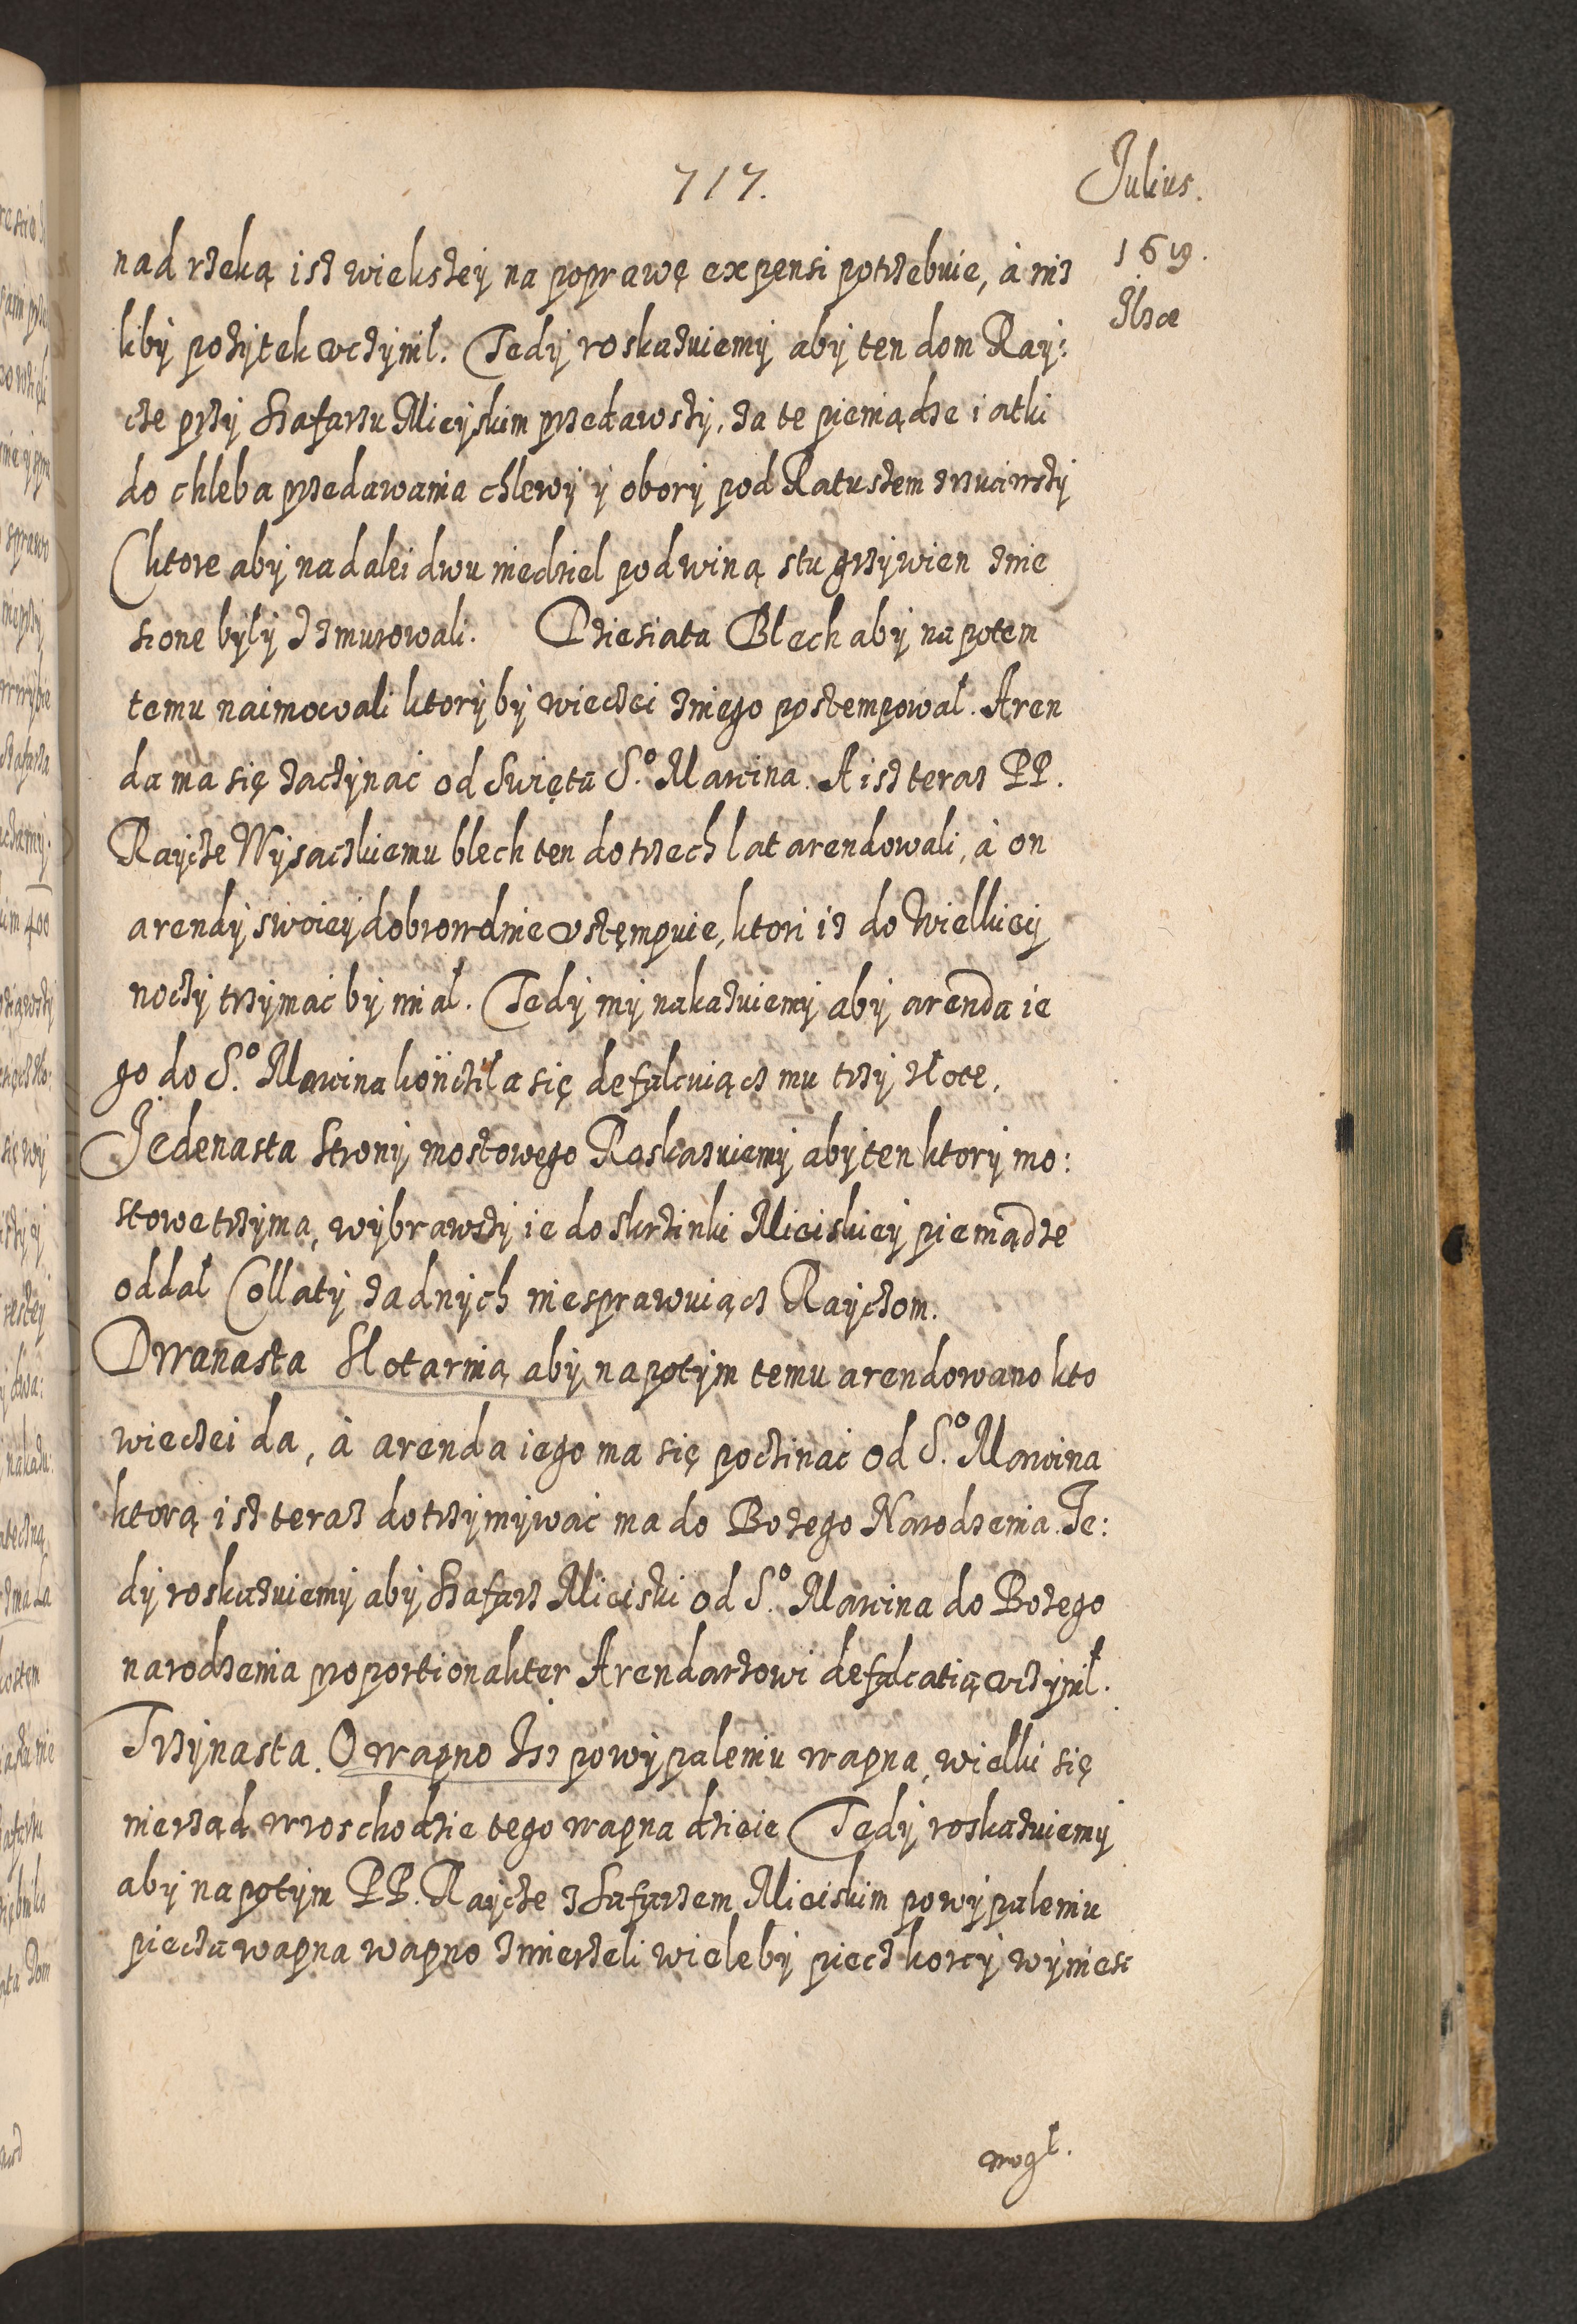 717.
Julius.
1619.
Ilzae
nad rzeką isz wiekszey na poprawę expensi potrzebuie, à niz
kby pozytek vczynil. Tedy roskazuiemy aby ten dom Ray:
cze przy Szafarzu Mieyskim przedawszy, za te pieniądze iatki
do chleba przedawania chlewy y obory pod Ratuszem zrzuciwszy
ktore aby nadalei dwu niedziel pod winą stu grzywien znie
sione były zzmurowali. Dziesiata Blech aby napotem
temu naimowali ktory by wieczei zniego postempował. Aren
da ma się zaczynac od Swięta S.º Marcina. A isz teraz PP.
Raycze Wysaczkiemu blech ten do trzech lat arendowali, à on
arendy swoiey dobrowolnie vstępuie, ktori iz do Wielkiey
noczy trzymac by mial. Tedy my nakazuiemy aby arenda ie
go do S.º Marcina kończiła się defalcuiącz mu trzy złote.
Jedenasta Strony mostowego Roskazuiemy aby ten ktory mo:
stowe trzyma, wybrawszy ie do skrzinki Mieiskiey pieniądze
oddał Collaty zadnych niesprawuiącz Rayczom.
Dwanasta Slotarnią aby napotym temu arendowano kto
wieczei da, à arenda iego ma się poczinac od S.º Marcina
ktorą isz teraz dotrzymywac ma do Bozego Narodzenia. Te:
dy roskazuiemy aby Szafarz Mieiski od S.º Marcina do Bozego
narodzenia proportionaliter Arendarzowi defalcatią vczynil.
Trzynasta. O wapno Isz po wypaleniu wapna, wielki się
nierząd w roschodzie tego wapna dzieie Tedy roskazuiemy
aby napotym PP. Raycze z Safarzem Mieiskim po wypaleniu
piecza wapna wapno zmierzeli wiele by piecz korcy wyniesc
mogł.